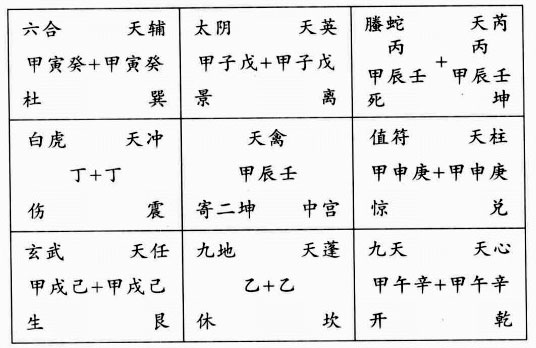 六合 天辅
甲寅癸+甲寅癸
杜 巽
太阴 天英
甲子戊+甲子戊
景 离
螣蛇 天芮
丙 + 丙
甲辰壬 甲辰壬
死 坤
白虎 天冲
丁+丁
伤 震
天禽
甲辰壬
寄二坤 中宫
值符 天柱
甲申庚+甲申庚
惊 兑
玄武 天任
甲戌己+甲戌己
生 艮
九地 天蓬
乙+乙
休 坎
九天 天心
甲午辛+甲午辛
开 乾